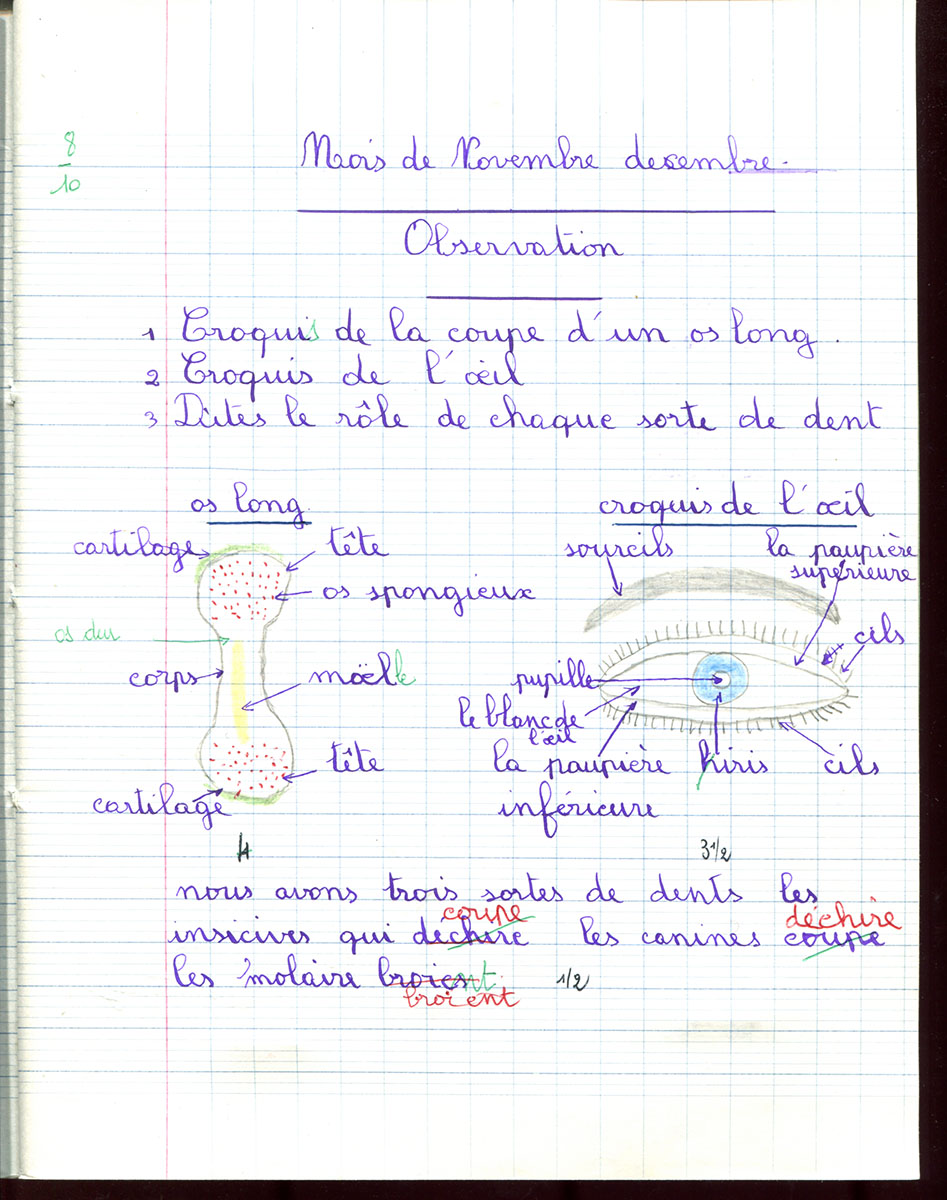 8
10
Maois de Novembre desembre.
Observation
1 Croquis de la coupe d'un os long.
2 Croquis de l'œil
3 Dites le rôle de chaque sorte de dent
os long
croquis de l'œil
cartilage
tête
os spongieux
os dur
corps
moëlle
tête
cartilage
sourcils
la paupière
supérieure
cils
pupille
le blanc de
l'œil
la paupière
inférieure
hiris
cils
4
3 1/2
nous avons trois sortes de dents les
coupe
déchire
insicives qui dechire les canines coupe
les molaire broient
broient
1/2